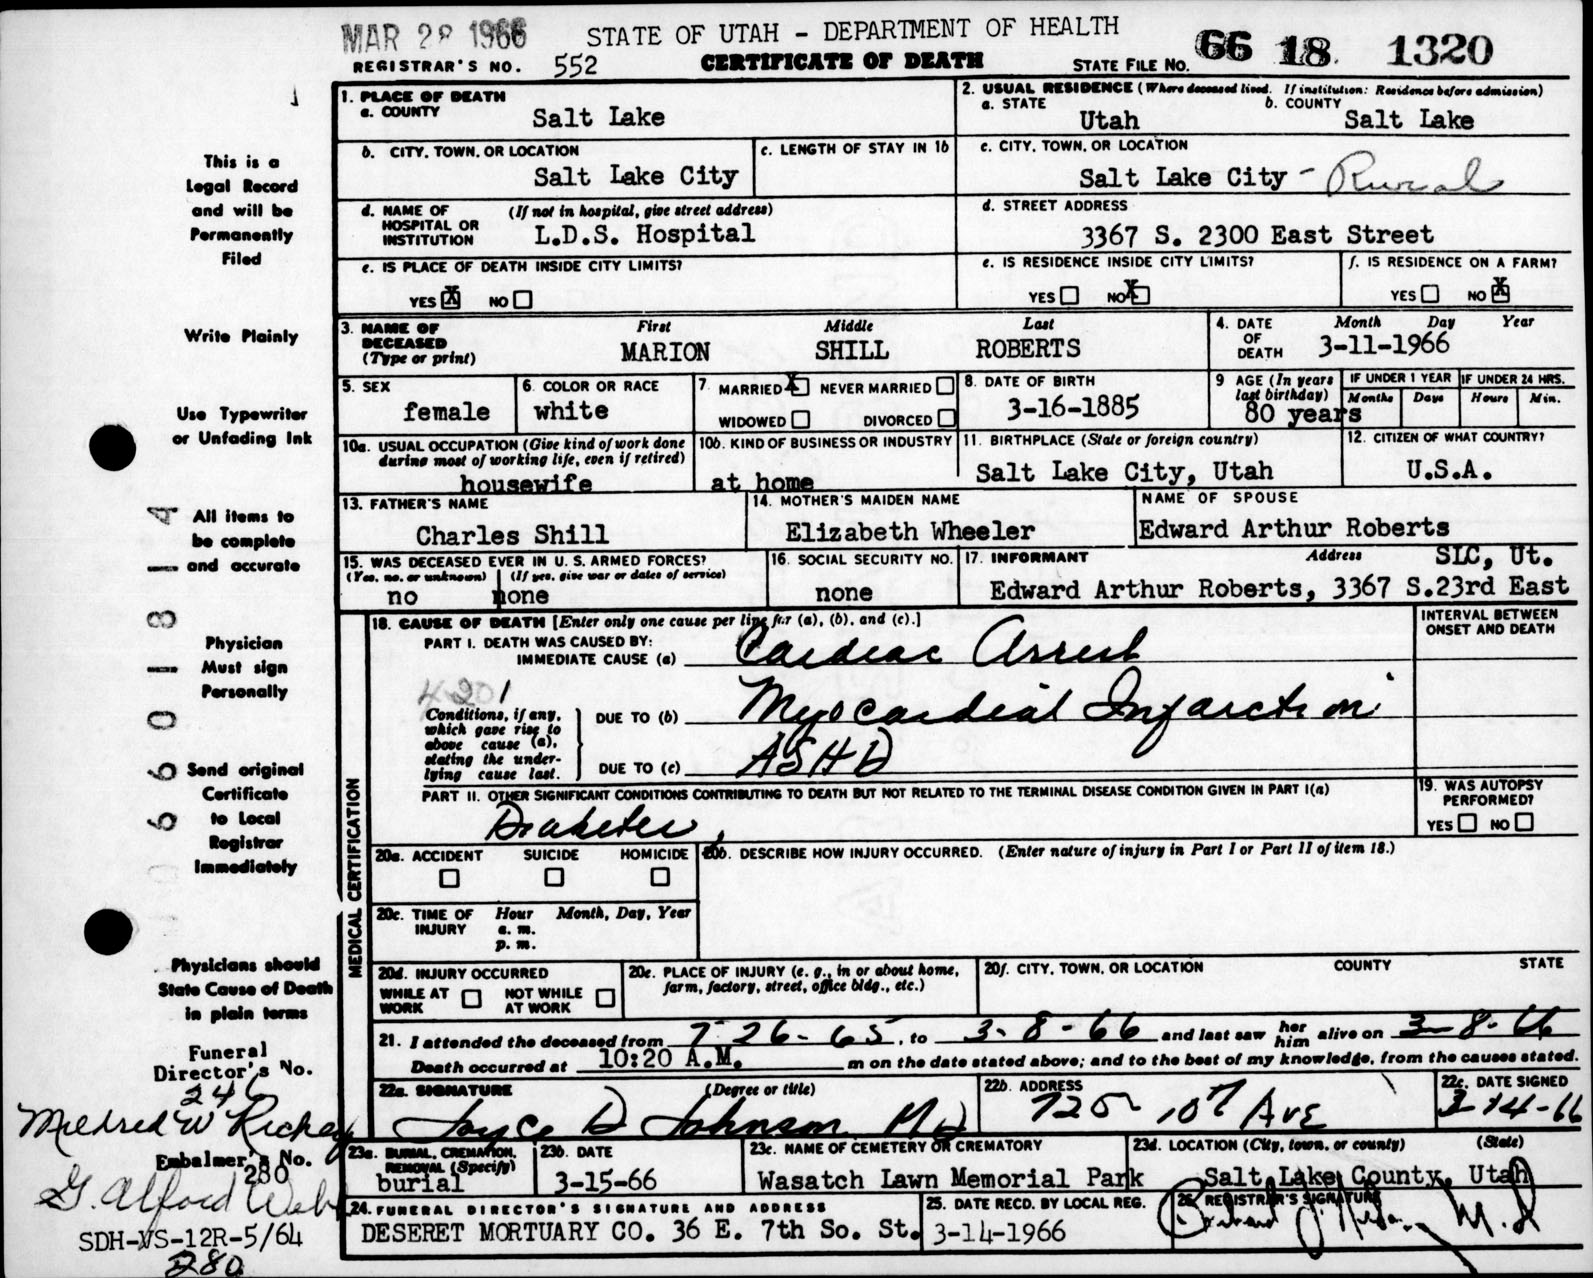 MAR 28 1966
STATE OF UTAH - DEPARTMENT OF HEALTH
66 18 1320
REGISTRAR'S NO. 552
CERTIFICATE OF DEATH
STATE FILE NO.
This is a
Legal Record
and will be
Permanently
Filed
Write Plainly
Use Typewriter
or Unfading Ink
All items to
be complete
and accurate
Physician
Must sign
Personally
Send original
Certificate
to Local
Registrar
Immediately
Physicians should
State Cause of Death
in plain terms
Funeral
Director's No.
246
Mildred W Richey
Embalmer's No.
280
G. Alford Webb
SDH-VS-12R-5/64
280
1. PLACE OF DEATH
a. COUNTY
Salt Lake
2. USUAL RESIDENCE (Where deceased lived. If institution: Residence before admission)
a. STATE b. COUNTY
Utah Salt Lake
b. CITY, TOWN, OR LOCATION
Salt Lake City
c. LENGTH OF STAY IN 1b
c. CITY, TOWN, OR LOCATION
Salt Lake City - Rural
d. NAME OF HOSPITAL OR INSTITUTION (If not in hospital, give street address)
L.D.S. Hospital
d. STREET ADDRESS
3367 S. 2300 East Street
e. IS PLACE OF DEATH INSIDE CITY LIMITS?
YES X NO
e. IS RESIDENCE INSIDE CITY LIMITS?
YES NO X
f. IS RESIDENCE ON A FARM?
YES NO X
3. NAME OF DECEASED (Type or print)
First Middle Last
MARION SHILL ROBERTS
4. DATE OF DEATH
Month Day Year
3-11-1966
5. SEX
female
6. COLOR OR RACE
white
7. MARRIED X NEVER MARRIED
WIDOWED DIVORCED
8. DATE OF BIRTH
3-16-1885
9 AGE (In years last birthday)
80 years
IF UNDER 1 YEAR
Months Days
IF UNDER 24 HRS.
Hours Min.
10a. USUAL OCCUPATION (Give kind of work done during most of working life, even if retired)
housewife
10b. KIND OF BUSINESS OR INDUSTRY
at home
11. BIRTHPLACE (State or foreign country)
Salt Lake City, Utah
12. CITIZEN OF WHAT COUNTRY?
U.S.A.
13. FATHER'S NAME
Charles Shill
14. MOTHER'S MAIDEN NAME
Elizabeth Wheeler
NAME OF SPOUSE
Edward Arthur Roberts
15. WAS DECEASED EVER IN U. S. ARMED FORCES?
(Yes, no, or unknown) (If yes, give war or dates of service)
no none
16. SOCIAL SECURITY NO.
none
17. INFORMANT Address SLC, Ut.
Edward Arthur Roberts, 3367 S.23rd East
MEDICAL CERTIFICATION
18. CAUSE OF DEATH [Enter only one cause per line for (a), (b), and (c).]
INTERVAL BETWEEN ONSET AND DEATH
PART I. DEATH WAS CAUSED BY:
IMMEDIATE CAUSE (a) Cardiac Arrest
4201
Conditions, if any, which gave rise to above cause (a), stating the underlying cause last.
DUE TO (b) Myocardial Infarction
DUE TO (c) ASHD
PART II. OTHER SIGNIFICANT CONDITIONS CONTRIBUTING TO DEATH BUT NOT RELATED TO THE TERMINAL DISEASE CONDITION GIVEN IN PART I(a)
Diabetes,
19. WAS AUTOPSY PERFORMED?
YES NO
20a. ACCIDENT SUICIDE HOMICIDE
20b. DESCRIBE HOW INJURY OCCURRED. (Enter nature of injury in Part I or Part II of item 18.)
20c. TIME OF INJURY Hour Month, Day, Year
a. m.
p. m.
20d. INJURY OCCURRED
WHILE AT WORK NOT WHILE AT WORK
20e. PLACE OF INJURY (e. g., in or about home, farm, factory, street, office bldg., etc.)
20f. CITY, TOWN, OR LOCATION COUNTY STATE
21. I attended the deceased from 7-26-65, to 3-8-66 and last saw her him alive on 3-8-66
Death occurred at 10:20 A.M. m on the date stated above; and to the best of my knowledge, from the causes stated.
22a. SIGNATURE (Degree or title)
Joyce D Johnson MD
22b. ADDRESS
725 10th Ave
22c. DATE SIGNED
3-14-66
23a. BURIAL, CREMATION, REMOVAL (Specify)
burial
23b. DATE
3-15-66
23c. NAME OF CEMETERY OR CREMATORY
Wasatch Lawn Memorial Park
23d. LOCATION (City, town, or county) (State)
Salt Lake County, Utah
24. FUNERAL DIRECTOR'S SIGNATURE AND ADDRESS
DESERET MORTUARY CO. 36 E. 7th So. St.
25. DATE RECD. BY LOCAL REG.
3-14-1966
26. REGISTRAR'S SIGNATURE
M.D
66 01814